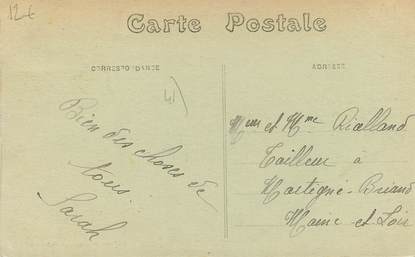 12€
Carte Postale
CORRESPONDANCE
ADRESSE
41
Bien des choses de
tous
Sarah
Mr et Mme Rialland
Tailleur à
Martigné-Briand
Maine et Loir